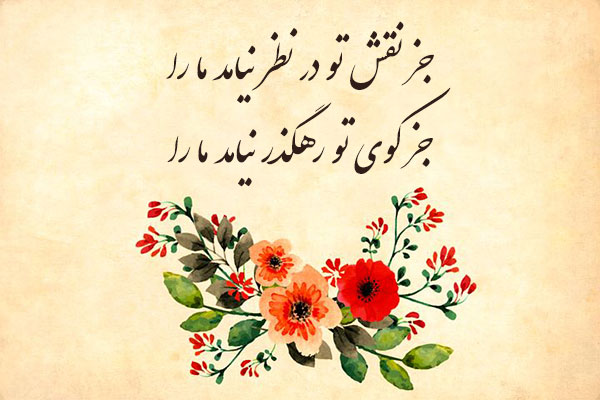 جز نقش تو در نظر نیامد ما را
جز کوی تو رهگذر نیامد ما را